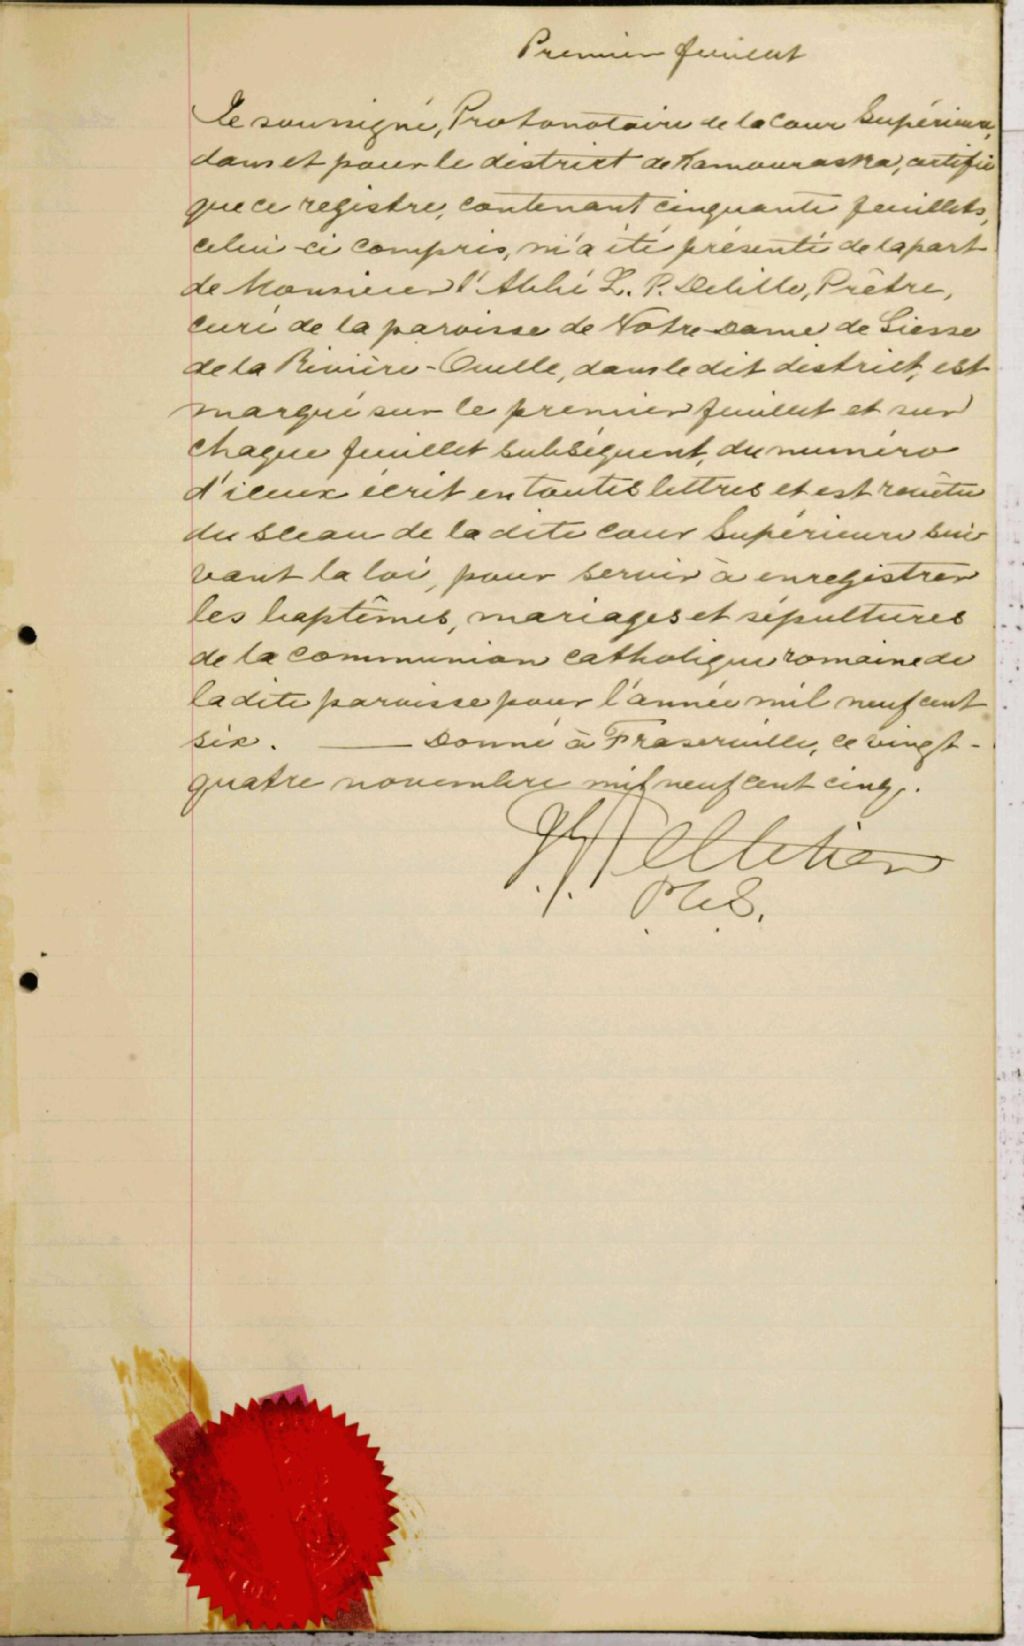 Premier feuillet
Le soussigné, Protonotaire de la Cour Supérieure,
dans et pour le district de Kamouraska, certifie
que ce registre, contenant cinquante feuillets,
celui-ci compris, m'a été présenté de la part
de Monsieur l'Abbé L. P. Delille, Prêtre,
curé de la paroisse de Notre-Dame de Liesse
de la Rivière-Ouelle, dans le dit district, est
marqué sur le premier feuillet et sur
chaque feuillet subséquent, du numéro
d'iceux écrit en toutes lettres et est revêtu
du sceau de la dite Cour Supérieure sui-
vant la loi, pour servir à enregistrer
les baptêmes, mariages et sépultures
de la communion catholique romaine de
la dite paroisse pour l'année mil neuf cent
six. —— Donné à Fraserville, ce vingt-
quatre novembre mil neuf cent cinq.
Pelletier
P.C.S.